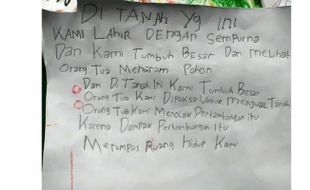 Di TANAH Yg INi
KAMi LAHiR DENGAN SEMPURNA
DAN KAMi TUMBUH BESAR DAN MELiHAT
ORANG TUA MENANAM POHON
DAN Di TANAH INi KAMi TUMBUH BESAR
ORANG TUA KAMi DiPAKSA UNTUK MENJUAL TANAH
ORANG TUA KAMi MENOLAK PERTAMBANGAN iTU
KARENA DAMPAK PERTAMBANGAN iTU
MERAMPAS RUANG HiDUP KAMi